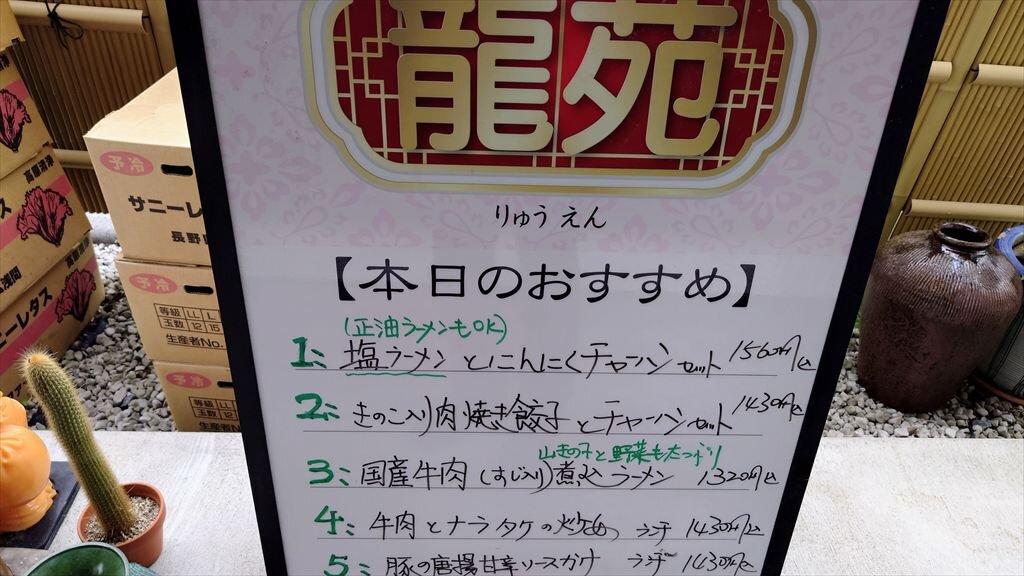 龍苑
りゅうえん
【本日のおすすめ】
(正油ラーメンもOK)
1: 塩ラーメンとにんにくチャーハンセット 1560円込
2: きのこ入り肉焼き餃子とチャーハンセット 1430円込
山きの子と野菜もたっぷり
3: 国産牛肉(すじ入り)煮込ラーメン 1320円込
4: 牛肉とナラタケの炒め ランチ 1430円込
5: 豚の唐揚甘辛ソースガケ ランチ 1430円込
予冷
サニーレ
長野県
予冷
等級 LL L
玉数 12 15
生産者No.
予冷
等級 LL
玉数
高原清浄
ス
高原清浄
浅間
ーレタス